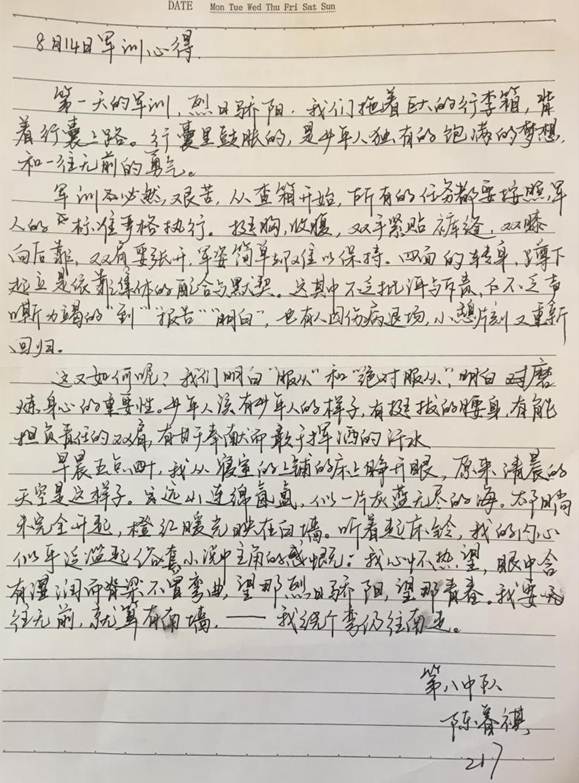 DATE Mon Tue Wed Thu Fri Sat Sun
8月14日军训心得.
第一天的军训,烈日骄阳.我们拖着巨大的行李箱,背
着行囊上路。行囊里鼓胀的,是少年人独有的饱满的梦想,
和一往无前的勇气。
军训必然艰苦,从查箱开始,所有的任务都要按照军
人的标准严格执行。挺胸,收腹,双手紧贴裤缝,双膝
向后靠,双肩要张开,军姿简单却难以保持。四面的转身,蹲下
起立是依靠集体的配合与默契。这其中不乏批评与斥责,也不乏声
嘶力竭的“到”“报告”“明白”,也有人因伤病退场,小憩片刻又重新
回归。
这又如何呢?我们明白“服从”和“绝对服从”,明白磨
炼身心的重要性。少年人该有少年人的样子,有挺拔的腰身,有能
担负责任的双肩,有甘于奉献而敢于挥洒的汗水
早晨五点四十,我从寝室的上铺的床上睁开眼,原来清晨的
天空是这样子。远山连绵氤氲,似一片灰蓝无尽的海。太阳尚
未完全升起,橙红暖光映在白墙。听着起床铃,我的内心
似乎泛滥起俗套小说中主角的感慨:我心怀热望,眼中含
有湿润而脊梁不置弯曲,望那烈日骄阳,望那青春。我要
往无前,就算有南墙,——我绕个弯仍往南走。
第八中队
陈暮祺
217